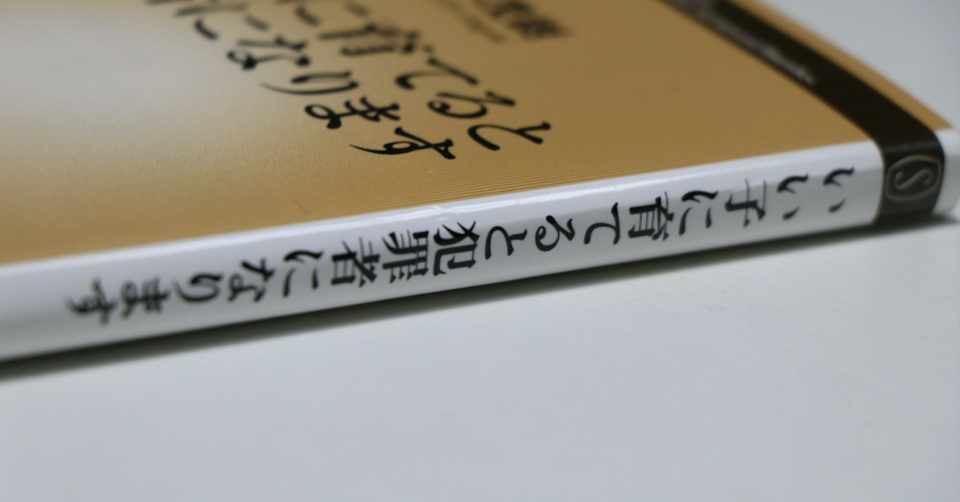 いい子に育てると犯罪者になります
に育てると
になります
S